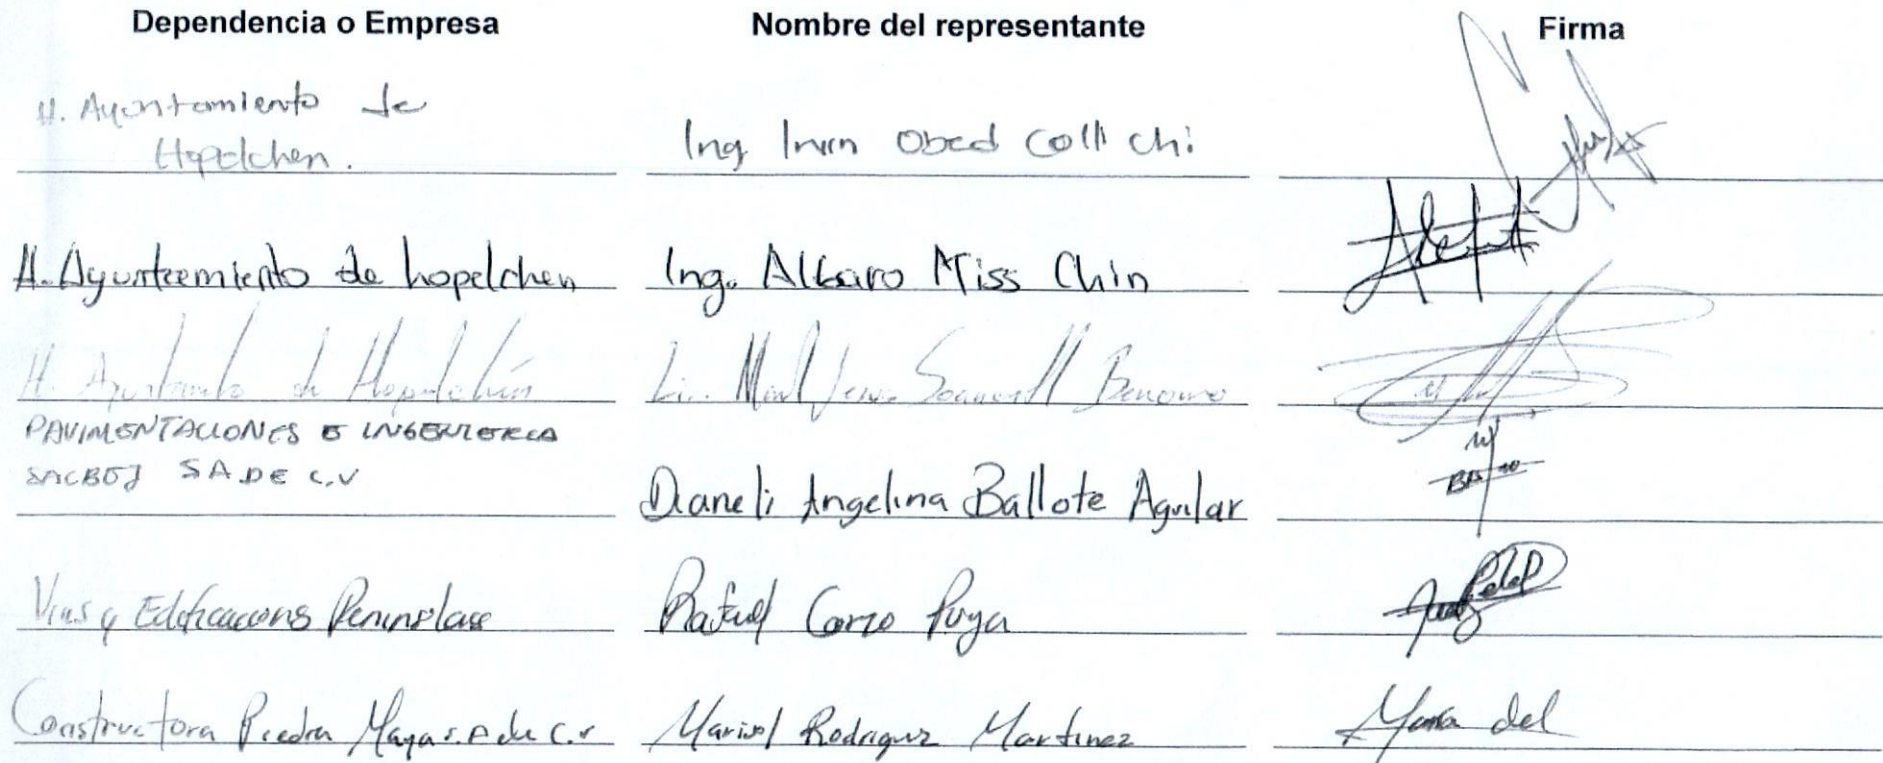 Dependencia o Empresa Nombre del representante Firma
H. Ayuntamiento de
Hopelchen.
Ing Irvin Obed Coll Chi
H. Ayuntamiento de hopelchen Ing. Alvaro Miss Chin
H. Ayuntamiento de Hopelchén Lic.
PAVIMENTACIONES E INGENIERIA
SACBEJ SA DE C.V
Dianeli Angelina Ballote Aguilar
Vias y Edificacions Peninsulase Rafael Corzo Puga
Constructora Piedra Maya S.A de C.V Marisol Rodriguez Martinez Maria del